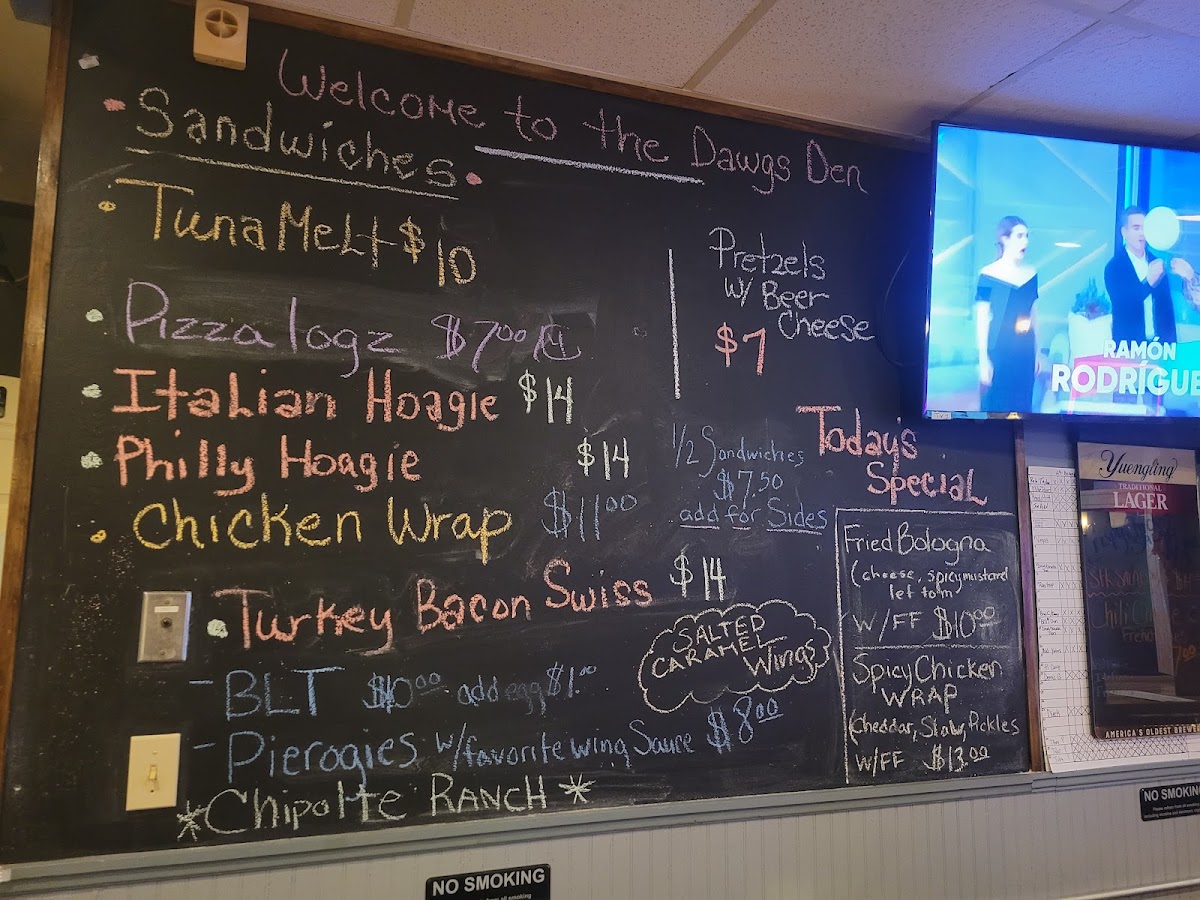 Welcome to the Dawgs Den
Sandwiches
Tuna Melt $10
Pizza logz $7.00
Italian Hoagie $14
Philly Hoagie $14
Chicken Wrap $11.00
Turkey Bacon Swiss $14
BLT $10.00 add egg $1.00
Pierogies w/favorite wing Sauce $8.00
*Chipotte RANCH*
Pretzels
w/ Beer
Cheese
$7
1/2 Sandwiches
$7.50
add for Sides
SALTED
CARAMEL
Wings
Today's
Special
Fried Bologna
(cheese, spicy mustard
let tom
W/FF $10.00
Spicy Chicken
WRAP
(Cheddar, Slaw, Pickles
W/FF $13.00
RAMÓN
RODRÍGUE
Yuengling
TRADITIONAL
LAGER
AMERICA'S OLDEST BREWE
NO SMOKING
NO SMOKING